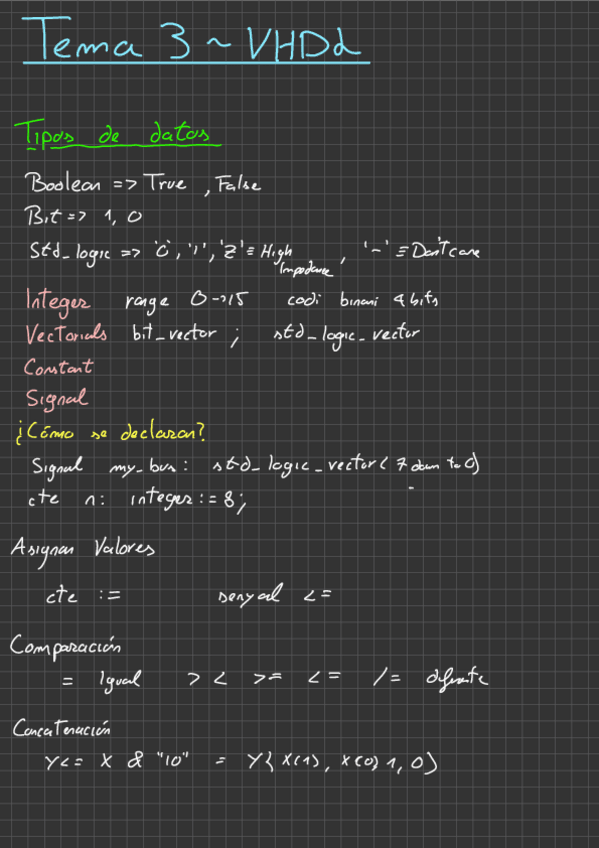 Tema 3 ~ VHDL
Tipos de datos
Boolean => True , False
Bit => 1, 0
Std_logic => '0', '1', 'Z' ≡ High Impedance , '-' ≡ Don't care
Integer range 0->15 codi binari 4 bits
Vectorials bit_vector ; std_logic_vector
Constant
Signal
¿Cómo se declaran?
Signal my_bus : std_logic_vector( 7 down to 0)
cte n: integer := 8;
Asignar Valores
cte := senyal <=
Comparación
= igual > < >= <= /= diferente
Concatenación
Y<= X & "10" = Y{ X(1), X(0) 1, 0)